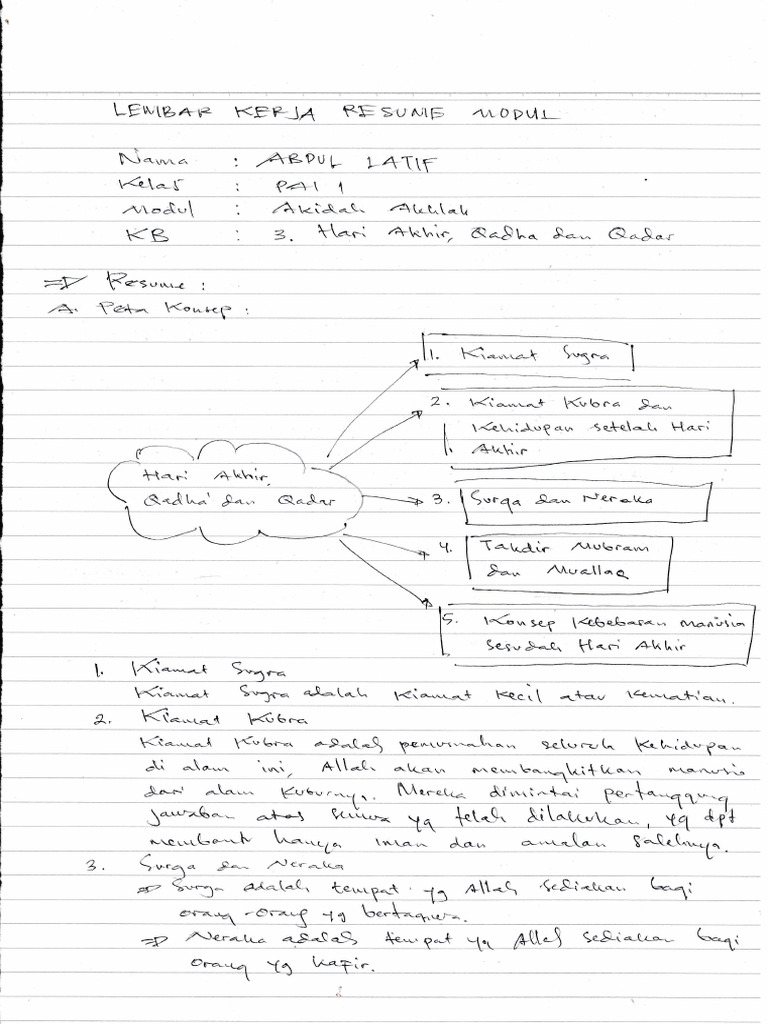 LEMBAR KERJA RESUME MODUL
Nama : ABDUL LATIF
Kelas : PAI 1
Modul : Akidah Akhlak
KB : 3. Hari Akhir, Qadha dan Qadar
⇒ Resume :
A. Peta Konsep :
Hari Akhir,
Qadha' dan Qadar
1. Kiamat Sugra
2. Kiamat Kubra dan
Kehidupan setelah Hari
Akhir
3. Surga dan Neraka
4. Takdir Mubram
dan Muallaq
5. Konsep Kebebasan Manusia
sesudah Hari Akhir
1. Kiamat Sugra
Kiamat Sugra adalah Kiamat Kecil atau Kematian.
2. Kiamat Kubra
Kiamat Kubra adalah pemusnahan seluruh Kehidupan
di alam ini, Allah akan membangkitkan manusia
dari alam Kuburnya. Mereka dimintai pertanggung
jawaban atas semua yg telah dilakukan, yg dpt
membantu hanya iman dan amalan salehnya.
3. Surga dan Neraka
⇒ Surga adalah tempat yg Allah sediakan bagi
orang-orang yg bertaqwa.
⇒ Neraka adalah tempat yg Allah sediakan bagi
orang yg Kafir.